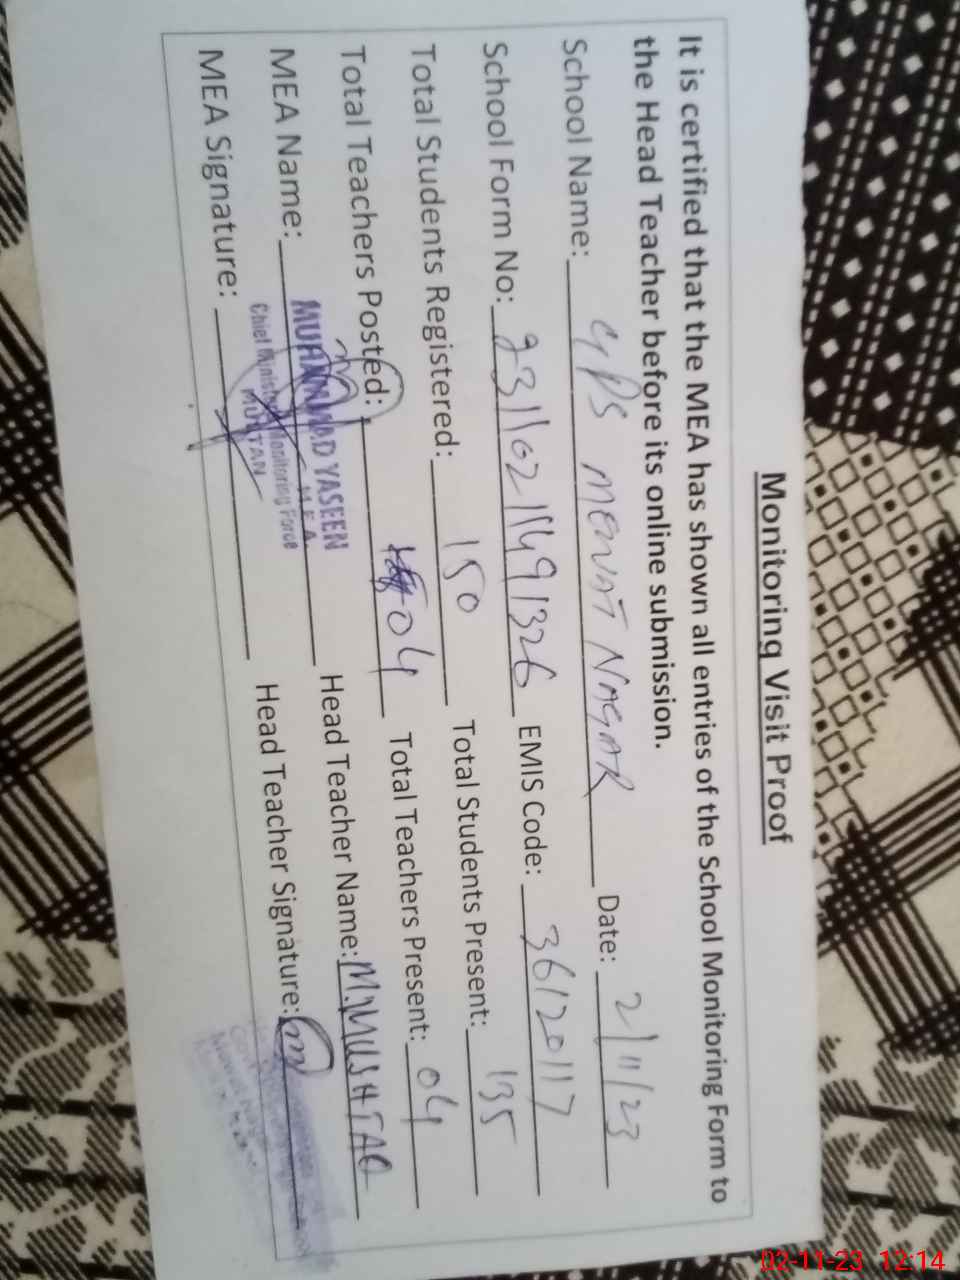 Monitoring Visit Proof
It is certified that the MEA has shown all entries of the School Monitoring Form to
the Head Teacher before its online submission.
School Name: GPS MEWAT NAGAR Date: 2/11/23
School Form No: EMIS Code: 36120117
Total Students Registered: 150 Total Students Present: 135
Total Teachers Posted: 04 Total Teachers Present: 04
MEA Name: MUHAMMAD YASEEN Head Teacher Name: M. MUSHTAQ
M.E.A.
MEA Signature: Head Teacher Signature:
Chief Minister Monitoring Force
MULTAN
02-11-23 12:14